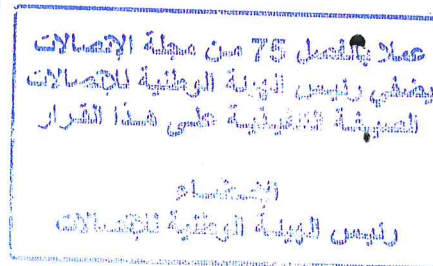 عملا بالفصل 75 من مجلة الإتصالات
يضفي رئيس الهيئة الوطنية للإتصالات
الصبغة التنفيذية على هذا القرار
الإمضاء
رئيس الهيئة الوطنية للإتصالات